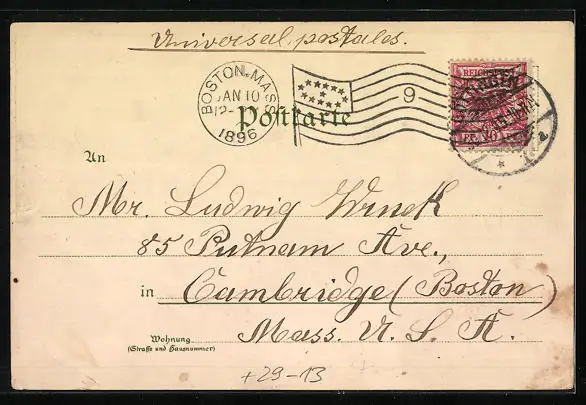 Universal postales.
BOSTON-MASS
JAN 10
1896
9
REICHSPOST
Postkarte
An
Mr. Ludwig Wruck
85 Putnam Ave.,
in Cambridge (Boston)
Wohnung
(Straße und Hausnummer)
Mass. U. S. A.
+29-13